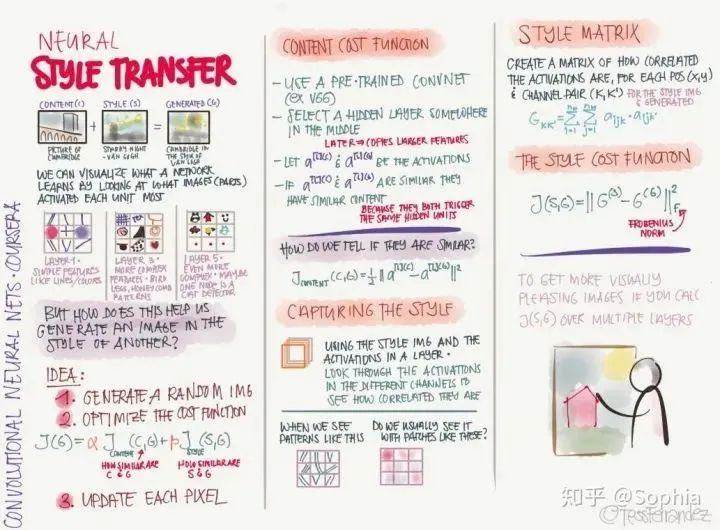 CONVOLUTIONAL NEURAL NETS · COURSERA
NEURAL
STYLE TRANSFER
CONTENT(C)
STYLE(S)
GENERATED(G)
+
=
PICTURE OF
CAMBRIDGE
STARRY NIGHT
-VAN GOGH
CAMBRIDGE IN
THE STYLE OF
VAN GOGH
WE CAN VISUALIZE WHAT A NETWORK
LEARNS BY LOOKING AT WHAT IMAGES (PARTS)
ACTIVATED EACH UNIT MOST
LAYER 1 ·
SIMPLE FEATURES
LIKE LINES/COLORS
LAYER 3 ·
MORE COMPLEX
FEATURES - BIRD
LEGS, HONEYCOMB
PATTERNS
LAYER 5 ·
EVEN MORE
COMPLEX - MAYBE
ONE NODE IS A
CAT DETECTOR
BUT HOW DOES THIS HELP US
GENERATE AN IMAGE IN THE
STYLE OF ANOTHER?
IDEA:
1. GENERATE A RANDOM IMG
2. OPTIMIZE THE COST FUNCTION
J(G) = α J CONTENT (C,G) + β J STYLE (S,G)
HOW SIMILAR ARE
C & G
HOW SIMILAR ARE
S & G
3. UPDATE EACH PIXEL
CONTENT COST FUNCTION
- USE A PRE-TRAINED CONVNET
(ex VGG)
- SELECT A HIDDEN LAYER SOMEWHERE
IN THE MIDDLE
LATER ⇒ COPIES LARGER FEATURES
- LET a[l](C) & a[l](G) BE THE ACTIVATIONS
- IF a[l](C) & a[l](G) ARE SIMILAR THEY
HAVE SIMILAR CONTENT
BECAUSE THEY BOTH TRIGGER
THE SAME HIDDEN UNITS
HOW DO WE TELL IF THEY ARE SIMILAR?
J CONTENT (C,G) = ½ || a[l](C) - a[l](G) ||²
CAPTURING THE STYLE
USING THE STYLE IMG AND THE
ACTIVATIONS IN A LAYER ·
LOOK THROUGH THE ACTIVATIONS
IN THE DIFFERENT CHANNELS TO
SEE HOW CORRELATED THEY ARE
WHEN WE SEE
PATTERNS LIKE THIS
DO WE USUALLY SEE IT
WITH PATCHES LIKE THESE?
STYLE MATRIX
CREATE A MATRIX OF HOW CORRELATED
THE ACTIVATIONS ARE, FOR EACH POS (X,Y)
& CHANNEL PAIR (K,K') FOR THE STYLE IMG
& GENERATED
THE STYLE COST FUNCTION
J(S,G) = || G(S) - G(G) ||²F
FROBENIUS
NORM
TO GET MORE VISUALLY
PLEASING IMAGES IF YOU CALC
J(S,G) OVER MULTIPLE LAYERS
知乎 @Sophia
@TessFerrandez